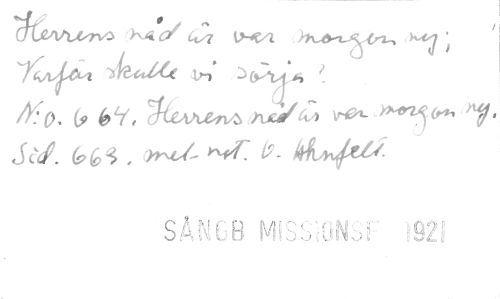 Herrens nåd är var morgon ny;
Varför skulle vi sörja?
N:o. 664. Herrens nåd är var morgon ny.
Sid. 663. mel-not. O. Ahnfelt.
SÅNGB MISSIONSF 1921